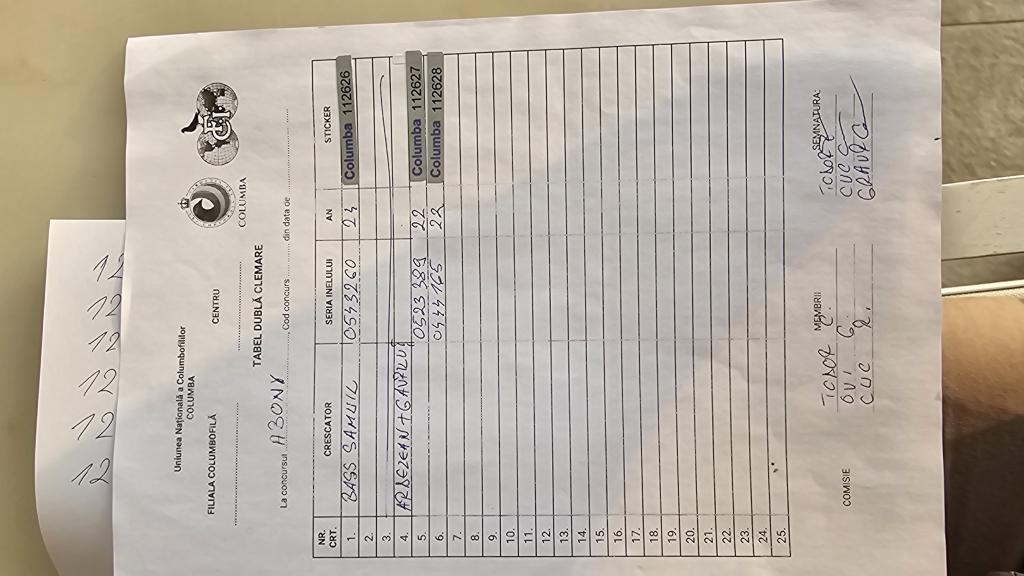 Uniunea Națională a Columbofililor
COLUMBA
COLUMBA
FILIALA COLUMBOFILĂ
CENTRU
TABEL DUBLĂ CLEMARE
La concursul ABONY Cod concurs din data de
NR. CRT. CRESCATOR SERIA INELULUI AN STICKER
1. BASS SAMUIL 0543260 24 Columba 112626
2.
3.
4. ARDEZEAN + GAVRILUȚ
5. 0523389 22 Columba 112627
6. 0444165 22 Columba 112628
7.
8.
9.
10.
11.
12.
13.
14.
15.
16.
17.
18.
19.
20.
21.
22.
23.
24.
25.
COMISIE MEMBRII SEMNATURA:
TODOR TODOR
CUC R. GRAUR
12
12
12
12
12
12